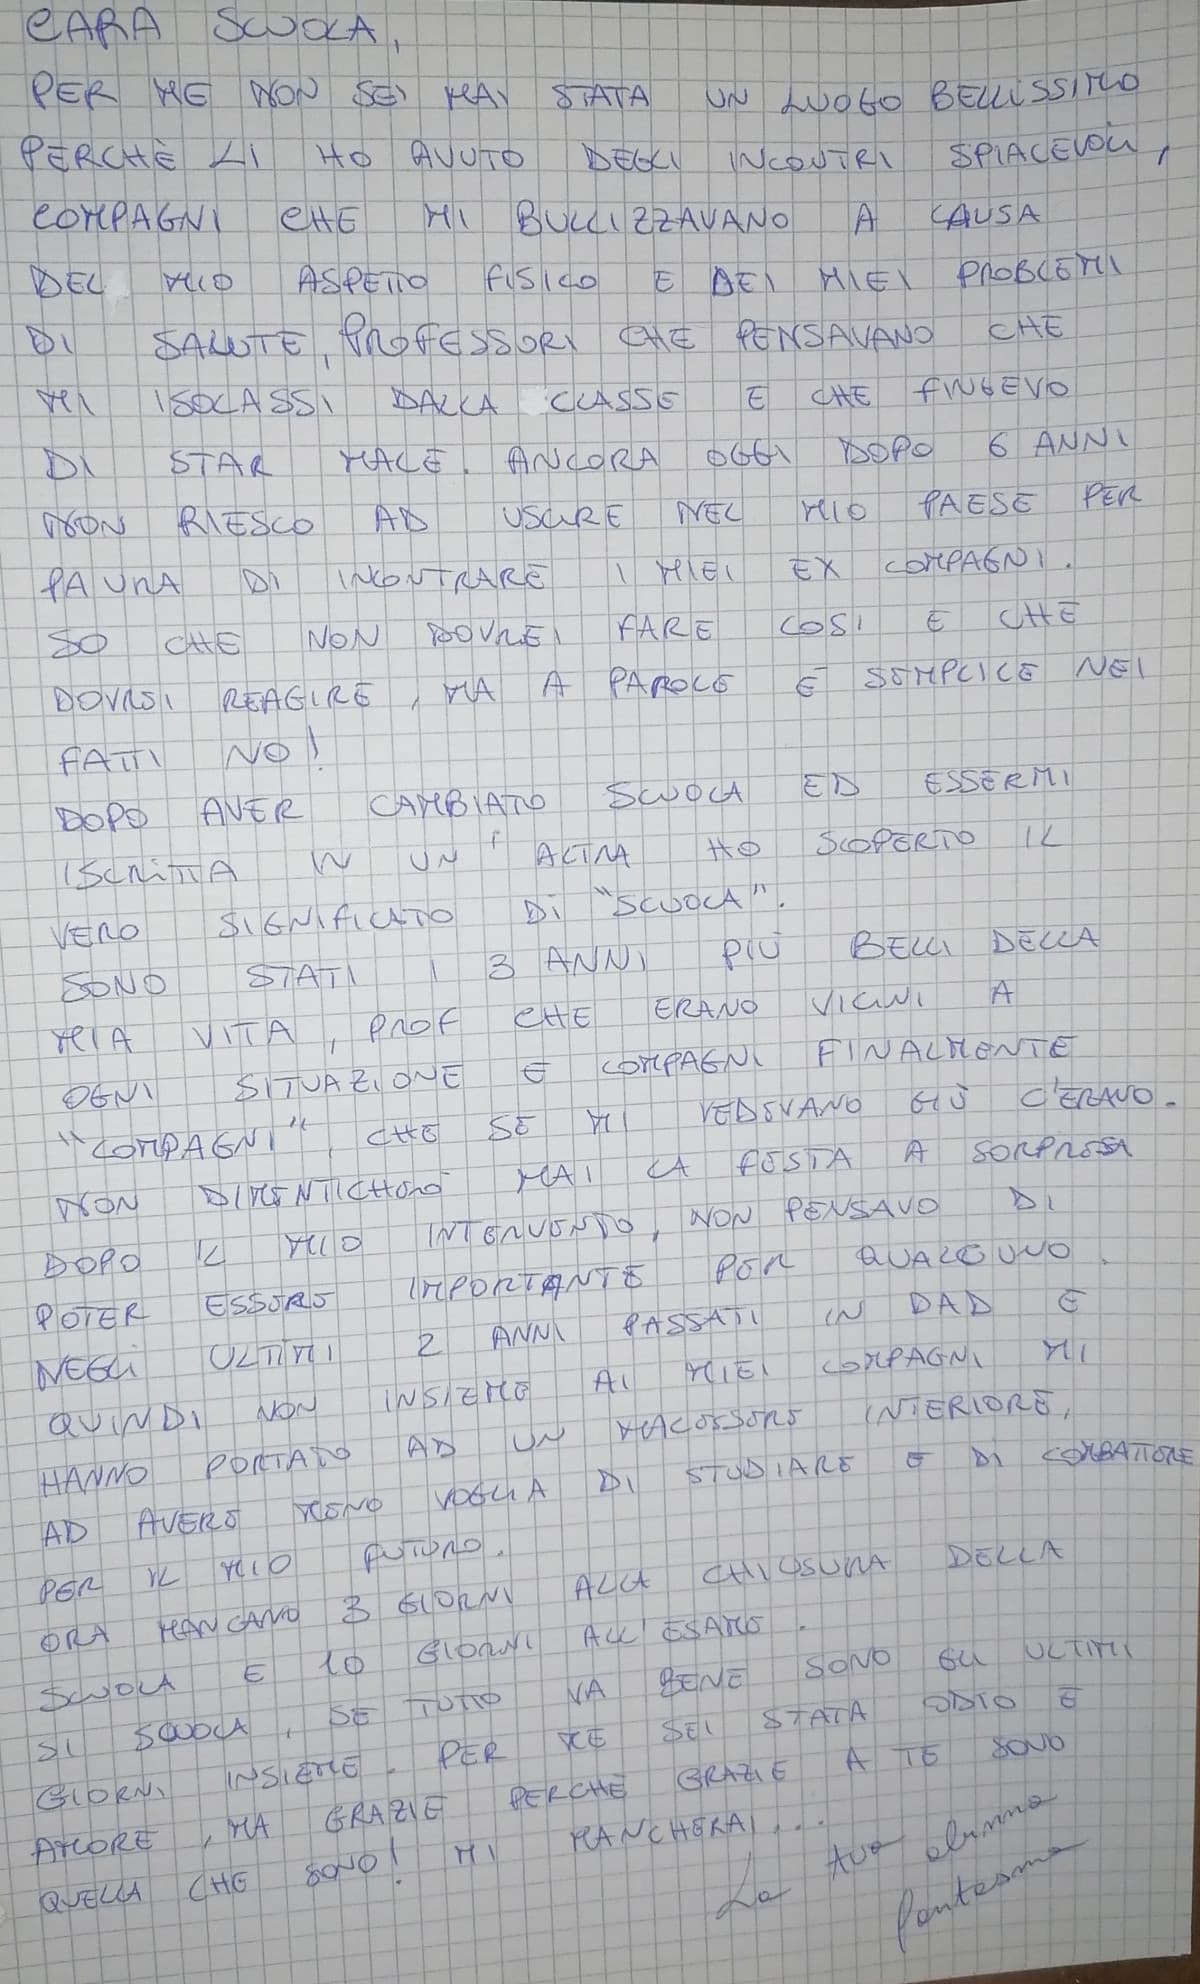 CARA SCUOLA,
PER ME NON SEI MAI STATA UN LUOGO BELLISSIMO
PERCHÈ LI HO AVUTO DEGLI INCONTRI SPIACEVOLI,
COMPAGNI CHE MI BULLIZZAVANO A CAUSA
DEL MIO ASPETTO FISICO E DEI MIEI PROBLEMI
DI SALUTE, PROFESSORI CHE PENSAVANO CHE
MI ISOLASSI DALLA CLASSE E CHE FINGEVO
DI STAR MALE. ANCORA OGGI DOPO 6 ANNI
NON RIESCO AD USCIRE NEL MIO PAESE PER
PAURA DI INCONTRARE I MIEI EX COMPAGNI.
SO CHE NON DOVREI FARE COSI E CHE
DOVREI REAGIRE, MA A PAROLE È SEMPLICE NEI
FATTI NO!
DOPO AVER CAMBIATO SCUOLA ED ESSERMI
ISCRITTA IN UN'ALTRA HO SCOPERTO IL
VERO SIGNIFICATO DI "SCUOLA".
SONO STATI I 3 ANNI PIÙ BELLI DELLA
MIA VITA, PROF CHE ERANO VICINI A
OGNI SITUAZIONE E COMPAGNI FINALMENTE
"COMPAGNI", CHE SE MI VEDEVANO GIÙ C'ERANO.
NON DIMENTICHERÒ MAI LA FESTA A SORPRESA
DOPO IL MIO INTERVENTO, NON PENSAVO DI
POTER ESSERE IMPORTANTE PER QUALCUNO.
NEGLI ULTIMI 2 ANNI PASSATI IN DAD E
QUINDI NON INSIEME AI MIEI COMPAGNI MI
HANNO PORTATO AD UN MALESSERE INTERIORE,
AD AVERE MENO VOGLIA DI STUDIARE E DI COMBATTERE
PER IL MIO FUTURO.
ORA MANCANO 3 GIORNI ALLA CHIUSURA DELLA
SCUOLA E 10 GIORNI ALL'ESAME.
SI SCUOLA, SE TUTTO VA BENE SONO GLI ULTIMI
GIORNI INSIEME. PER ME SEI STATA ODIO E
AMORE, MA GRAZIE PERCHÈ GRAZIE A TE SONO
QUELLA CHE SONO! MI MANCHERAI...
La tua alunna
fantasma